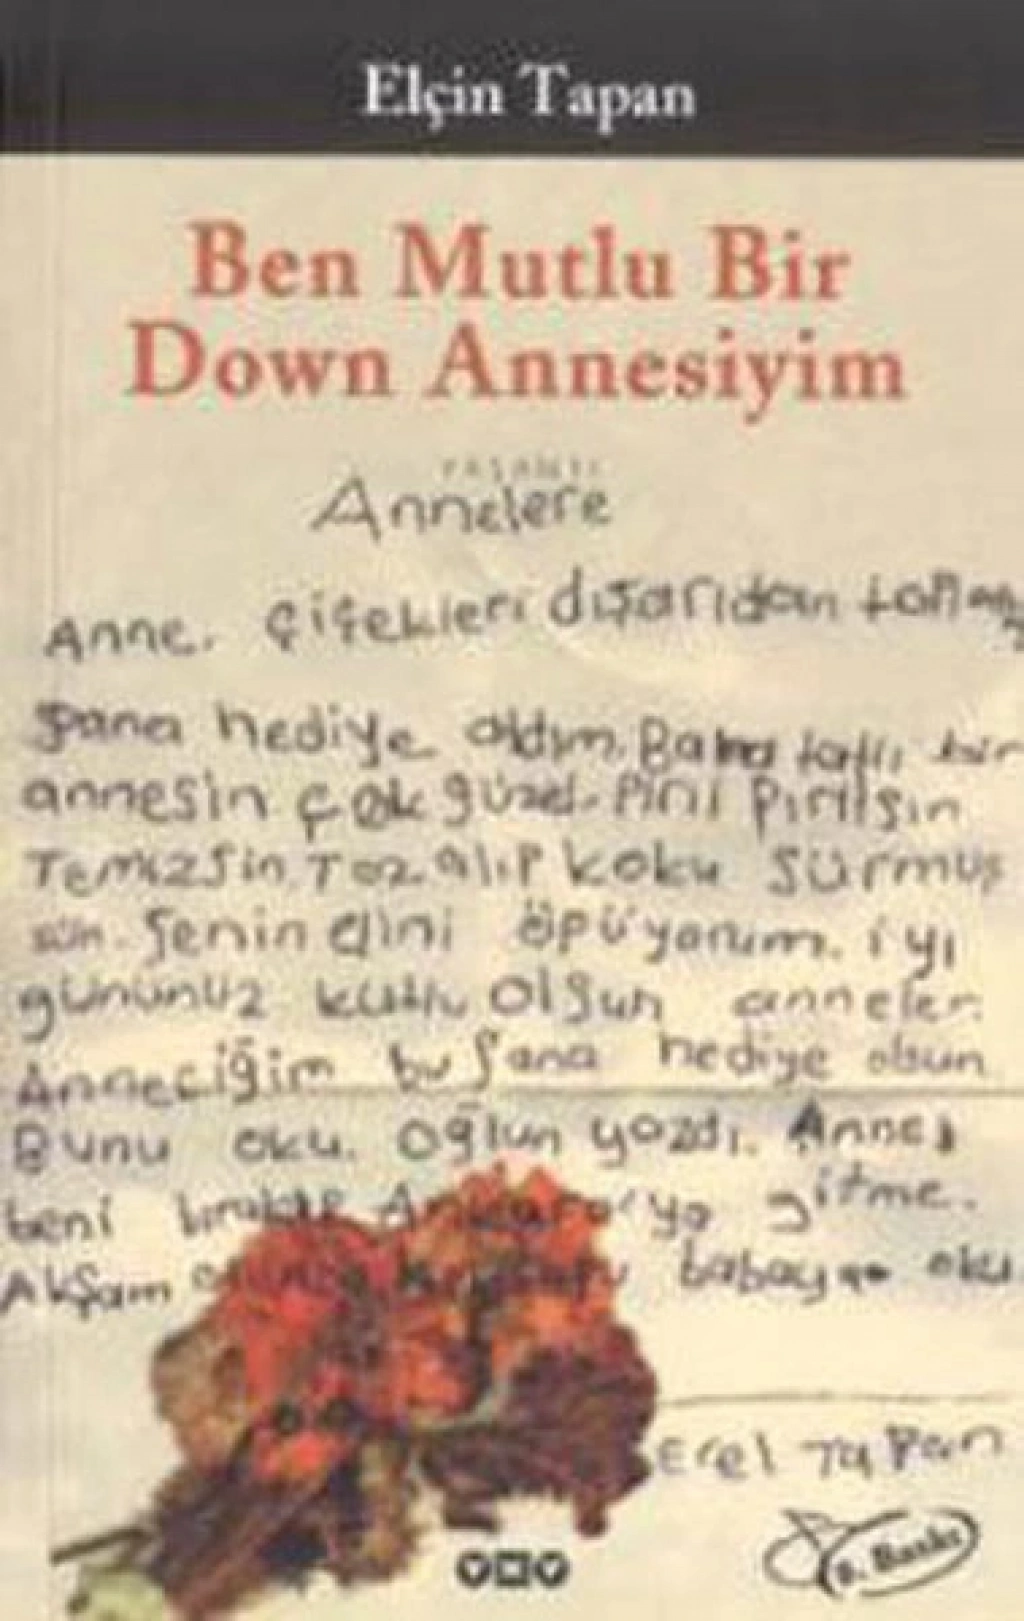 Elçin Tapan
Ben Mutlu Bir
Down Annesiyim
YAŞANTI
Annelere
Anne. Çiçekleri dışarıdan
şana hediye aldım. Bana tatlı bir
annesin çok güzel. Pırıl pırılsın
Temizsin. Toz alıp koku sürmüş
sün. Şenin elini öpüyorum. iyi
gününüz kutlu olsun anneler.
Anneciğim bu şana hediye olsun
Bunu oku. oğlun yazdı. Anne
beni bırakıp Ankara'ya gitme.
Akşam babaya oku.
Erel Tapan
YKY
Baskı